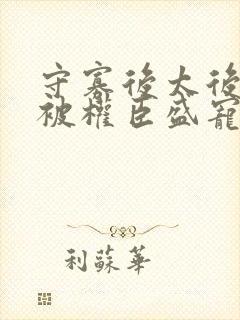 守寡後太後
被權臣盛寵
利蘇華